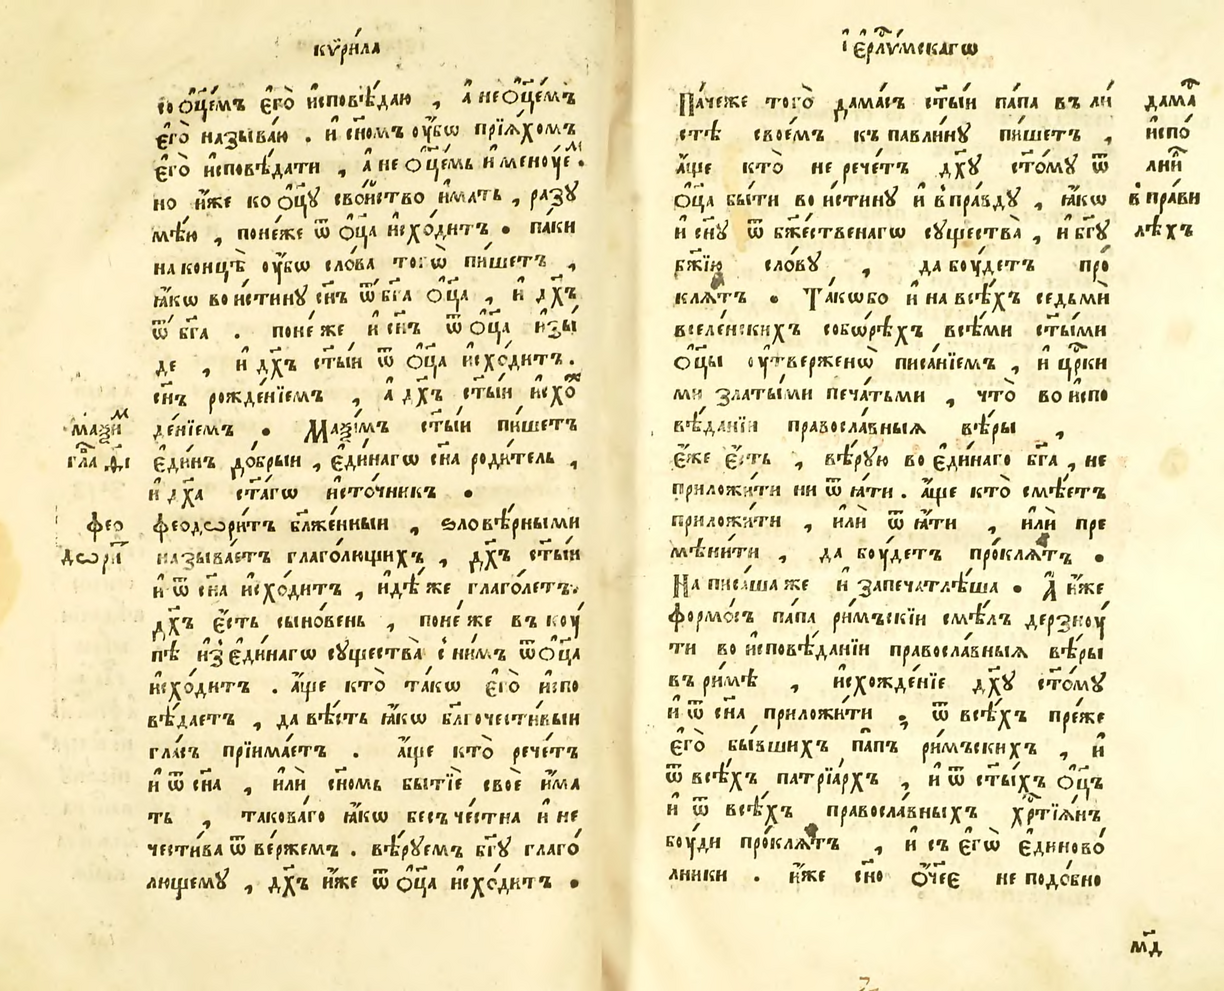 кѷри́ла
со ѻ҆ц҃е́мъ є҆го̀ и҆сповѣ́даю , а҆ не ѻ҆ц҃е́мъ
є҆го̀ называ́ю . и҆ сн҃омъ ᲂу҆́бѡ прїѧ́хомъ
є҆го̀ и҆сповѣ́дати , а҆ не ѻ҆ц҃е́мь и҆менꙋ́е .
но и҆́же ко ѻ҆ц҃ꙋ̀ сво́йство и҆́мать , разꙋ
мѣ́ю , поне́же ѿ ѻ҆ц҃а̀ и҆схо́дитъ . па́ки
на концѣ̀ ᲂу҆́бѡ сло́ва тогѡ̀ пи́шетъ ,
ꙗ҆́кѡ во и҆́стинꙋ сн҃ъ ѿ бг҃а ѻ҆ц҃а̀ , и҆ дх҃ъ
ѿ бг҃а . поне́же и҆ сн҃ъ ѿ ѻ҆ц҃а̀ и҆зы́
де , и҆ дх҃ъ ст҃ы́и ѿ ѻ҆ц҃а̀ и҆схо́дитъ .
сн҃ъ рожде́нїемъ , а҆ дх҃ъ ст҃ы́и и҆схож
маѯи́м
де́нїемъ . Маѯи́мъ ст҃ы́и пи́шетъ
гл҃а
є҆ди́нъ до́брыи , є҆ди́нагѡ сн҃а роди́тель ,
и҆ дх҃а ст҃а́гѡ и҆сто́чникъ .
фео
феодѡри́тъ бл҃же́нныи , ѕловѣ́рными
дѡри́т
называ́етъ глаго́лющихъ , дх҃ъ ст҃ы́и
и҆ ѿ сн҃а и҆схо́дитъ , и҆дѣ́же глаго́летъ .
дх҃ъ є҆́сть сыно́вень , поне́же въ коу́
пѣ и҆з̾ є҆ди́нагѡ сꙋщества̀ с̾ ни́мъ ѿ ѻ҆ц҃а̀
и҆схо́дитъ . а҆́ще кто̀ та́кѡ є҆го̀ и҆спо
вѣ́даетъ , да вѣ́сть ꙗ҆́кѡ бл҃гочести́выи
гла́съ прїима́етъ . а҆́ще кто̀ рече́тъ
и҆ ѿ сн҃а , и҆лѝ сн҃омь бытїѐ своѐ и҆́ма
ть , такова́го ꙗ҆́кѡ бесъче́стна и҆ не
чести́ва ѿве́ржемъ . вѣ́рꙋемъ бг҃ꙋ глаго́
лющемꙋ , дх҃ъ и҆́же ѿ ѻ҆ц҃а̀ и҆схо́дитъ .
і҆є҆рⷭ҇лѷ́мскагѡ
Па́чеже того̀ дама́съ ст҃ы́и па́па въ ли́
дама́
стѣ̀ свое́мъ къ павли́нꙋ пи́шетъ ,
и҆спо́
а҆́ще кто̀ не рече́тъ дх҃ꙋ ст҃о́мꙋ ѿ
лни́т
ѻ҆ц҃а̀ бы́ти во и҆́стинꙋ и҆ в̾ пра́вдꙋ , ꙗ҆́кѡ
в̾ пра́ви
и҆ сн҃ꙋ ѿ бж҃е́ственагѡ сꙋщества̀ , и҆ бг҃ꙋ
лѣхъ
бж҃їю сло́вꙋ , да боу́детъ про́
клѧтъ . Та́кѡбо и҆ на всѣ́хъ седьмѝ
вселе́нскихъ собѡ́рѣхъ всѣ́ми ст҃ы́ми
ѻ҆ц҃ы ᲂу҆твержено̀ писа́нїемъ , и҆ цр҃ки
ми златы́ми печа́тьми , что̀ во и҆спо
вѣ́данїи правосла́вныѧ вѣ́ры ,
є҆́же є҆́сть , вѣ́рꙋю во є҆ди́наго бг҃а , не
приложи́ти ни ѿѧ́ти . а҆́ще кто̀ смѣ́етъ
приложи́ти , и҆лѝ ѿѧ́ти , и҆лѝ пре
мѣни́ти , да боу́детъ про́клѧтъ .
Написа́ша же и҆ запечатлѣ́ша . А҆ и҆́же
формо́съ па́па ри́мъскїи смѣ́лъ дерзноу́
ти во и҆сповѣ́данїи правосла́вныѧ вѣ́ры
въ ри́мѣ , и҆схожде́нїе дх҃ꙋ ст҃о́мꙋ
и҆ ѿ сн҃а приложи́ти , ѿ всѣ́хъ пре́же
є҆го̀ бы́вшихъ па́пъ ри́мъскихъ , и҆
ѿ всѣ́хъ патрїа́рхъ , и҆ ѿ ст҃ы́хъ ѻ҆ц҃ъ
и҆ ѿ всѣ́хъ правосла́вныхъ хрⷭ҇тїѧ́нъ
боу́ди про́клѧтъ , и҆ съ є҆гѡ̀ є҆диново́
лники . и҆́же сн҃о ѻ҆́ч҃ее не подо́бно
м҃д